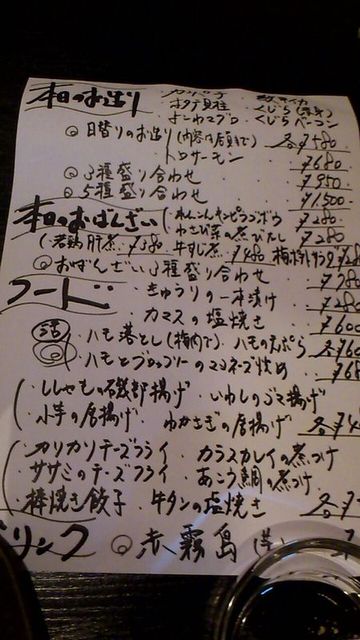 本日のお造り
ホタテ貝柱 くじら ベーコン
よこわマグロ
◎日替りのお造り(内容は店員まで) 各¥580
トロサーモン ¥680
◎3種盛り合わせ ¥950
◎5種盛り合わせ ¥1,500
本日のおばんざい れんこんキンピラゴボウ ¥280
わさび菜の煮びたし ¥280
若鶏肝煮 ¥380 牛すじ煮 ¥480
◎おばんざい3種盛り合わせ ¥780
フード きゅうりの一本漬け ¥280
カマスの塩焼き ¥600
ハモ落とし(梅肉で) ハモの天ぷら
ハモとブロッコリーのマヨネーズ炒め
ししゃもの磯部揚げ いわしのゴマ揚げ
小芋の唐揚げ わかさぎの唐揚げ
カリカリチーズフライ カラスカレイの煮つけ
ササミのチーズフライ あこう鯛の煮つけ
棒焼き餃子 牛タンの塩焼き
ドリンク ◎赤霧島